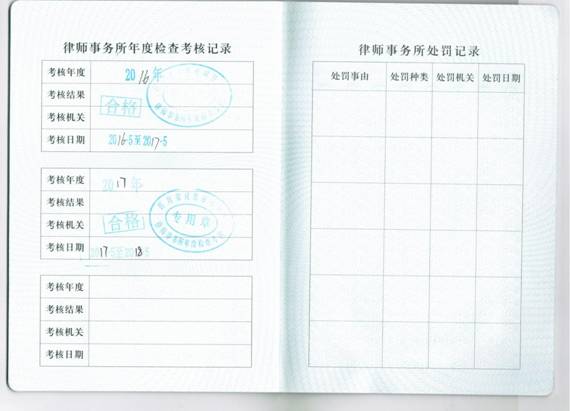 律师事务所年度检查考核记录
考核年度 2016年
考核结果 合格
考核机关
考核日期 2016.5至2017.5
考核年度 2017年
考核结果
考核机关 合格
专用章
律师事务所年度检查考核
考核日期 2017.5至2018.5
考核年度
考核结果
考核机关
考核日期
律师事务所处罚记录
处罚事由 处罚种类 处罚机关 处罚日期